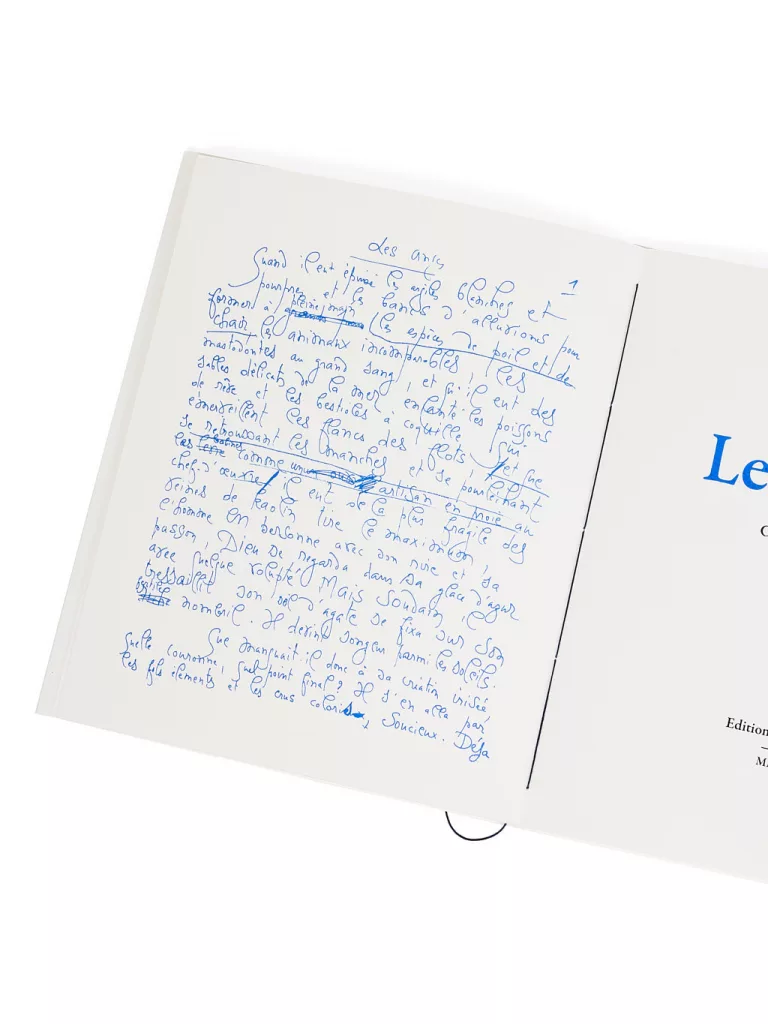 Les
1
Quand il eut épuisé les argiles blanches et
pourpres et les bancs d'alluvions pour
former à pleine main les espèces de poil et de
chair les animaux incomparables, les
mastodontes au grand sang, et qu'il eut des
sables délicats de la mer, enfanté les poissons
de rêve et les bestioles à coquille qui
émerveillent les flancs des flots, et que
se retroussant les manches et se pourléchant
les comme un artisan en proie au
chef-d'œuvre, il eut de la plus fragile des
veines de kaolin tiré le maximum,
l'homme en personne avec son rire et sa
passion, Dieu se regarda dans sa glace d'azur
avec quelque volupté. Mais soudain il
tressaillit son œil d'agate se fixa sur son
nombril. Il devint songeur parmi les soleils.
Que manquait-il donc à sa création irisée
quelle couronne, quel point final? Il s'en alla par
les fols éléments et les crus coloris, soucieux. Déjà
Le
Edition